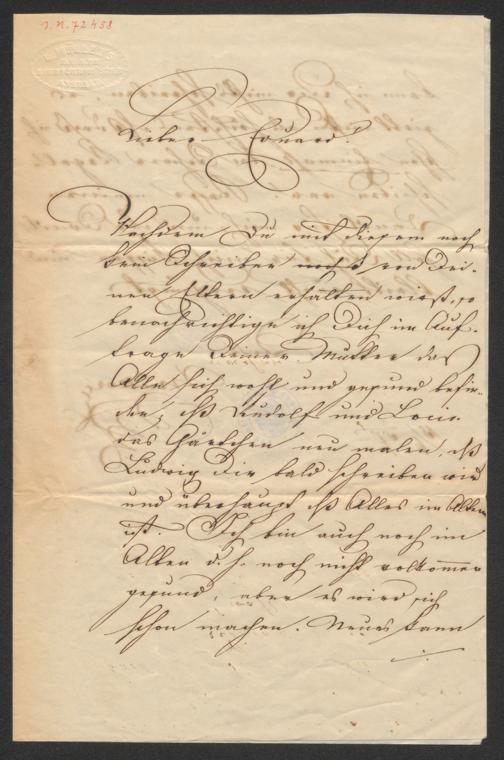 I. N. 72458
Lieber Eduard!
Nachdem Du mit diesem noch
kein Schreiben von Dei-
nen Eltern erhalten wirst, so
benachrichtige ich Dich im Auf-
trage Deiner Mutter das
Alle sich wohl und gesund befin-
den; daß Rudolf und Louis
das Gärtchen neu malen, daß
Ludwig Dir bald schreiben wird
und überhaupt daß Alles im Alten
ist. Ich bin auch noch im
Alten d. h. noch nicht vollkommen
gesund, aber es wird sich
schon machen. Neues kann